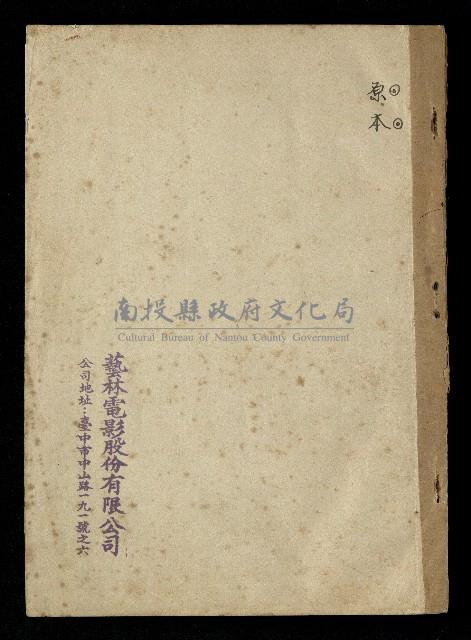 原◎
本◎
南投縣政府文化局
Cultural Bureau of Nantou County Government
藝林電影股份有限公司
公司地址：臺中市中山路一九一號之六